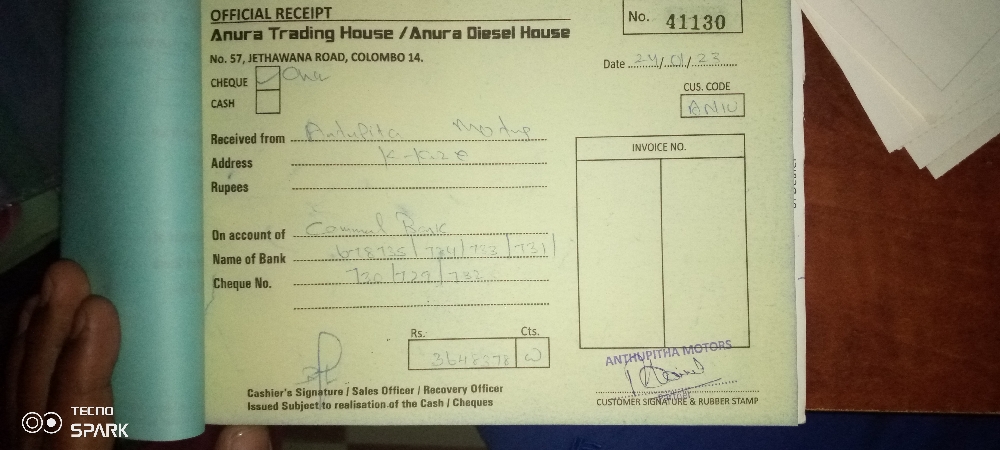 OFFICIAL RECEIPT
No. 41130
Anura Trading House / Anura Diesel House
No. 57, JETHAWANA ROAD, COLOMBO 14.
Date 24/01/23
CHEQUE
CASH
CUS. CODE
Received from
Address
Rupees
INVOICE NO.
On account of
Name of Bank 678735/734/733/731/
Cheque No. 730/729/732
Rs. Cts.
3648378
ANTHUPITHA MOTORS
Cashier's Signature / Sales Officer / Recovery Officer
Issued Subject to realisation of the Cash / Cheques
CUSTOMER SIGNATURE & RUBBER STAMP
TECNO
SPARK